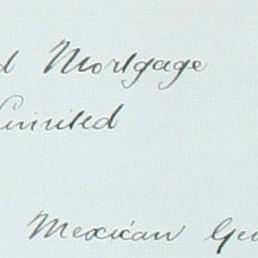 d Mortgage
Limited
Mexican Gu